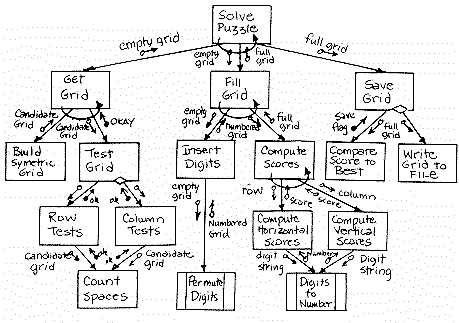 Solve
Puzzle
empty grid
empty
grid
full
grid
full grid
Get
Grid
Fill
Grid
Save
Grid
Candidate
Grid
Candidate
Grid
OKAY
empty
grid
Numbered
grid
full
grid
Save
flag
full
grid
Build
Symetric
Grid
Test
Grid
Insert
Digits
Compute
Scores
Compare
Score to
Best
Write
Grid to
File
ok
ok
empty
grid
row
score
score
column
Row
Tests
Column
Tests
Numbered
Grid
Compute
Horizontal
Scores
Compute
Vertical
Scores
Candidate
grid
ok
Candidate
grid
digit
string
Number
Digit
string
Count
Spaces
Permute
Digits
Digits
to
Number